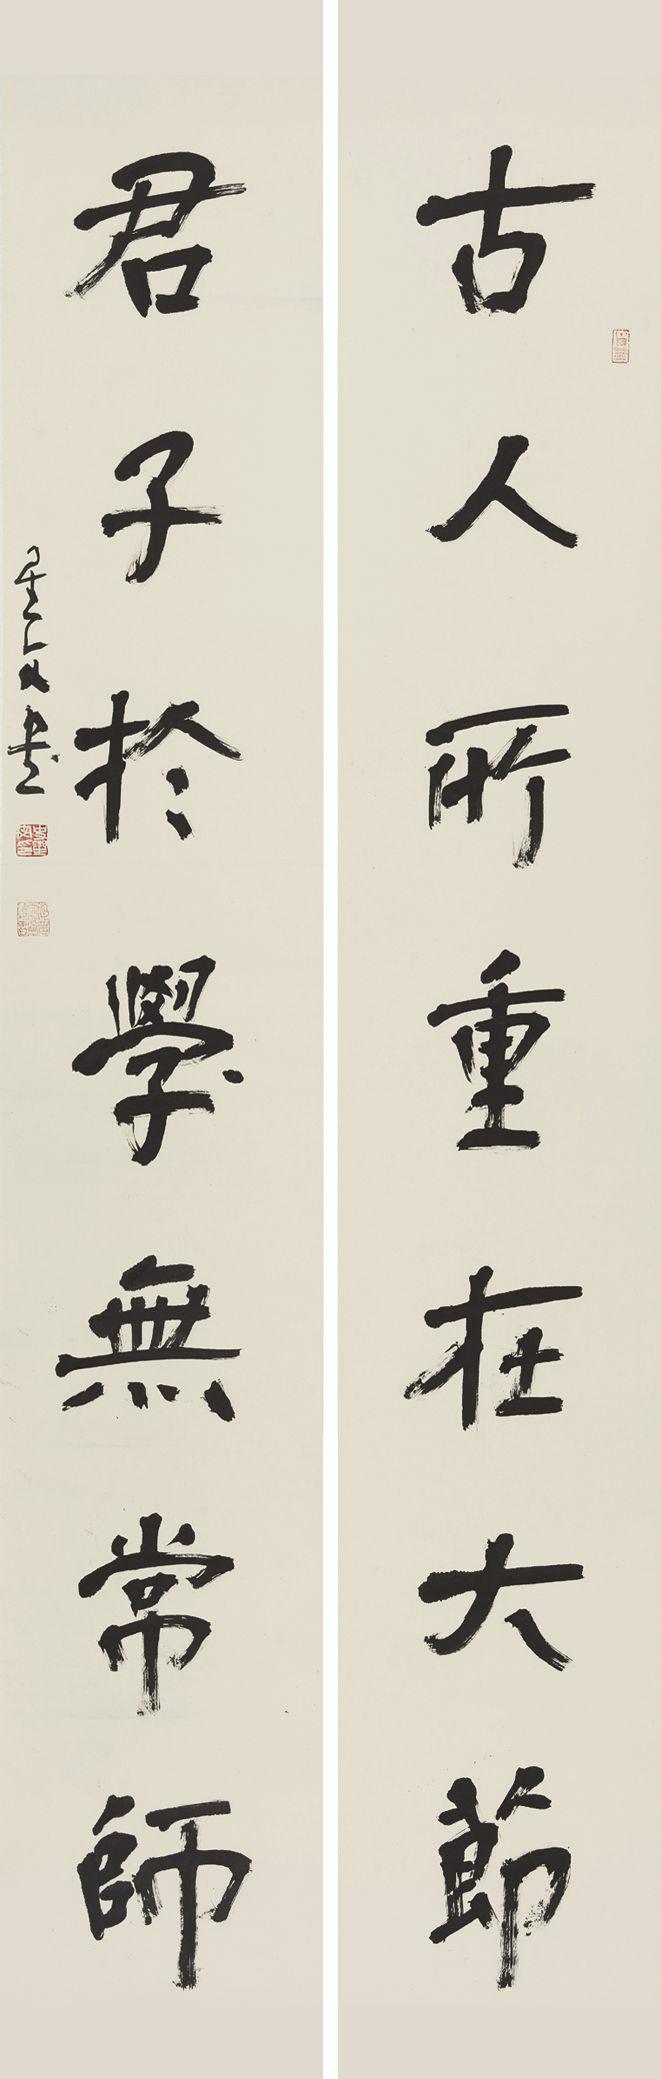 古人所重在大節
君子於學無常師